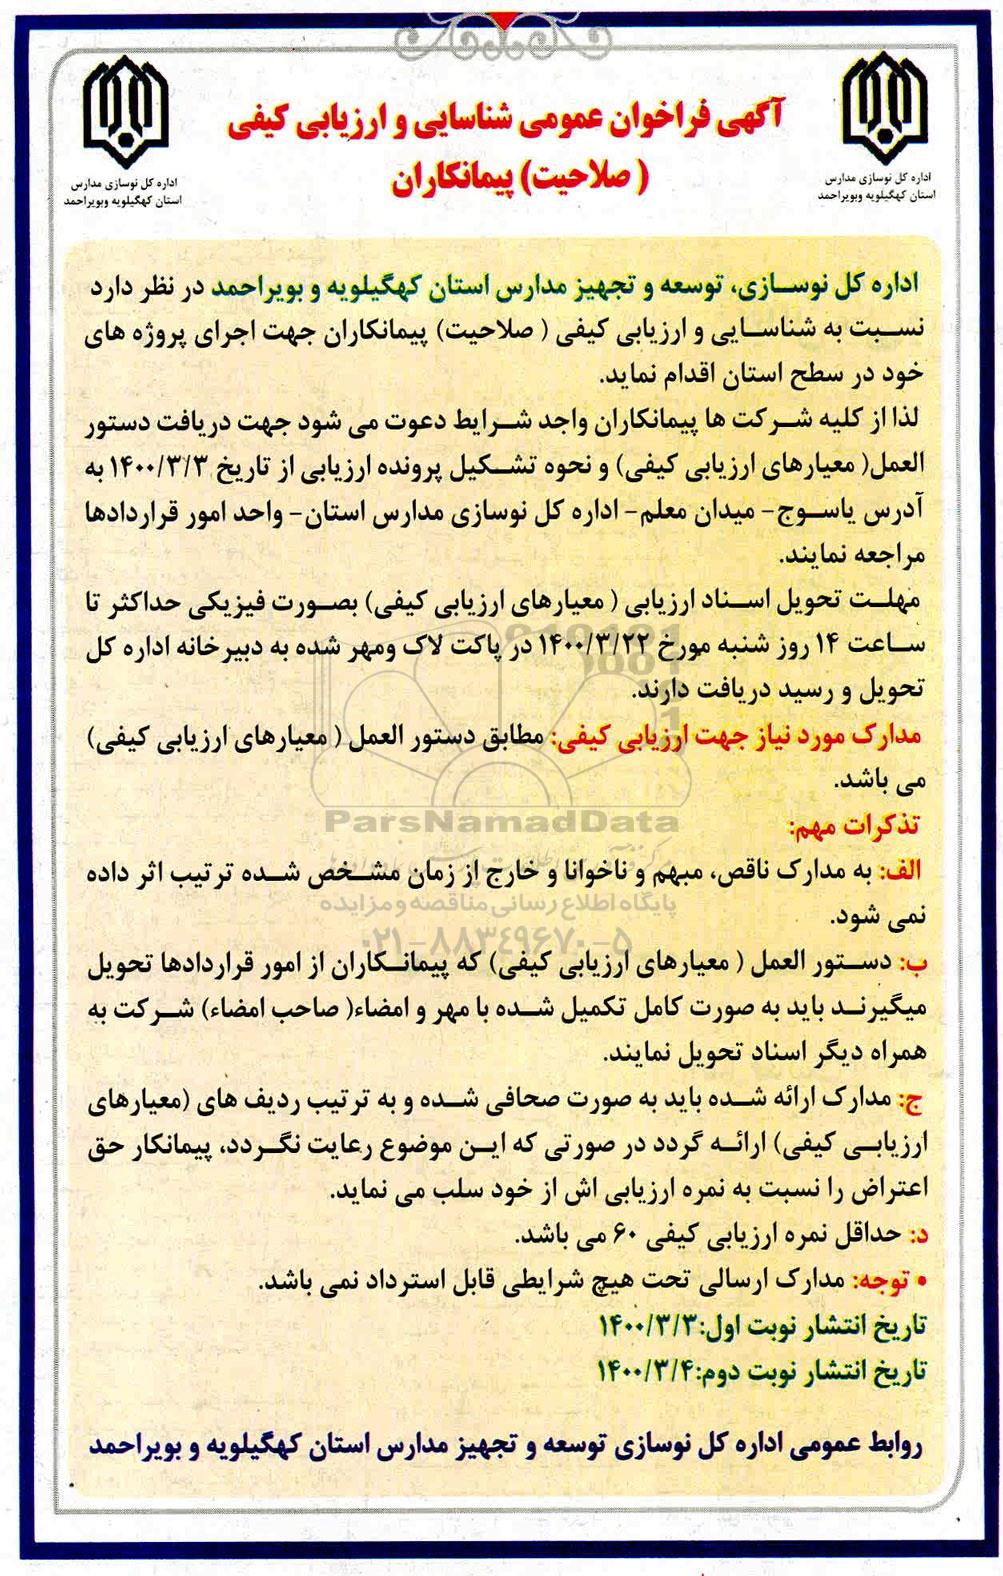 آگهی فراخوان عمومی شناسایی و ارزیابی کیفی
( صلاحیت) پیمانکاران
اداره کل نوسازی مدارس
استان کهگیلویه وبویراحمد
اداره کل نوسازی مدارس
استان کهگیلویه وبویراحمد
اداره کل نوسازی، توسعه و تجهیز مدارس استان کهگیلویه و بویراحمد در نظر دارد
نسبت به شناسایی و ارزیابی کیفی ( صلاحیت) پیمانکاران جهت اجرای پروژه های
خود در سطح استان اقدام نماید.
لذا از کلیه شرکت ها پیمانکاران واجد شرایط دعوت می شود جهت دریافت دستور
العمل( معیارهای ارزیابی کیفی) و نحوه تشکیل پرونده ارزیابی از تاریخ ۱۴۰۰/۳/۳ به
آدرس یاسوج- میدان معلم- اداره کل نوسازی مدارس استان- واحد امور قراردادها
مراجعه نمایند.
مهلت تحویل اسناد ارزیابی ( معیارهای ارزیابی کیفی) بصورت فیزیکی حداکثر تا
ساعت ۱۴ روز شنبه مورخ ۱۴۰۰/۳/۲۲ در پاکت لاک ومهر شده به دبیرخانه اداره کل
تحویل و رسید دریافت دارند.
مدارک مورد نیاز جهت ارزیابی کیفی: مطابق دستور العمل ( معیارهای ارزیابی کیفی)
می باشد.
ParsNamadData
تذکرات مهم:
الف: به مدارک ناقص، مبهم و ناخوانا و خارج از زمان مشخص شده ترتیب اثر داده
پایگاه اطلاع رسانی مناقصه و مزایده
نمی شود.
۰۲۱-۸۸۳۴۹۶۷۰-۵
ب: دستور العمل ( معیارهای ارزیابی کیفی) که پیمانکاران از امور قراردادها تحویل
میگیرند باید به صورت کامل تکمیل شده با مهر و امضاء( صاحب امضاء) شرکت به
همراه دیگر اسناد تحویل نمایند.
ج: مدارک ارائه شده باید به صورت صحافی شده و به ترتیب ردیف های (معیارهای
ارزیابی کیفی) ارائه گردد در صورتی که این موضوع رعایت نگردد، پیمانکار حق
اعتراض را نسبت به نمره ارزیابی اش از خود سلب می نماید.
د: حداقل نمره ارزیابی کیفی ۶۰ می باشد.
• توجه: مدارک ارسالی تحت هیچ شرایطی قابل استرداد نمی باشد.
تاریخ انتشار نوبت اول:۱۴۰۰/۳/۳
تاریخ انتشار نوبت دوم:۱۴۰۰/۳/۴
روابط عمومی اداره کل نوسازی توسعه و تجهیز مدارس استان کهگیلویه و بویراحمد